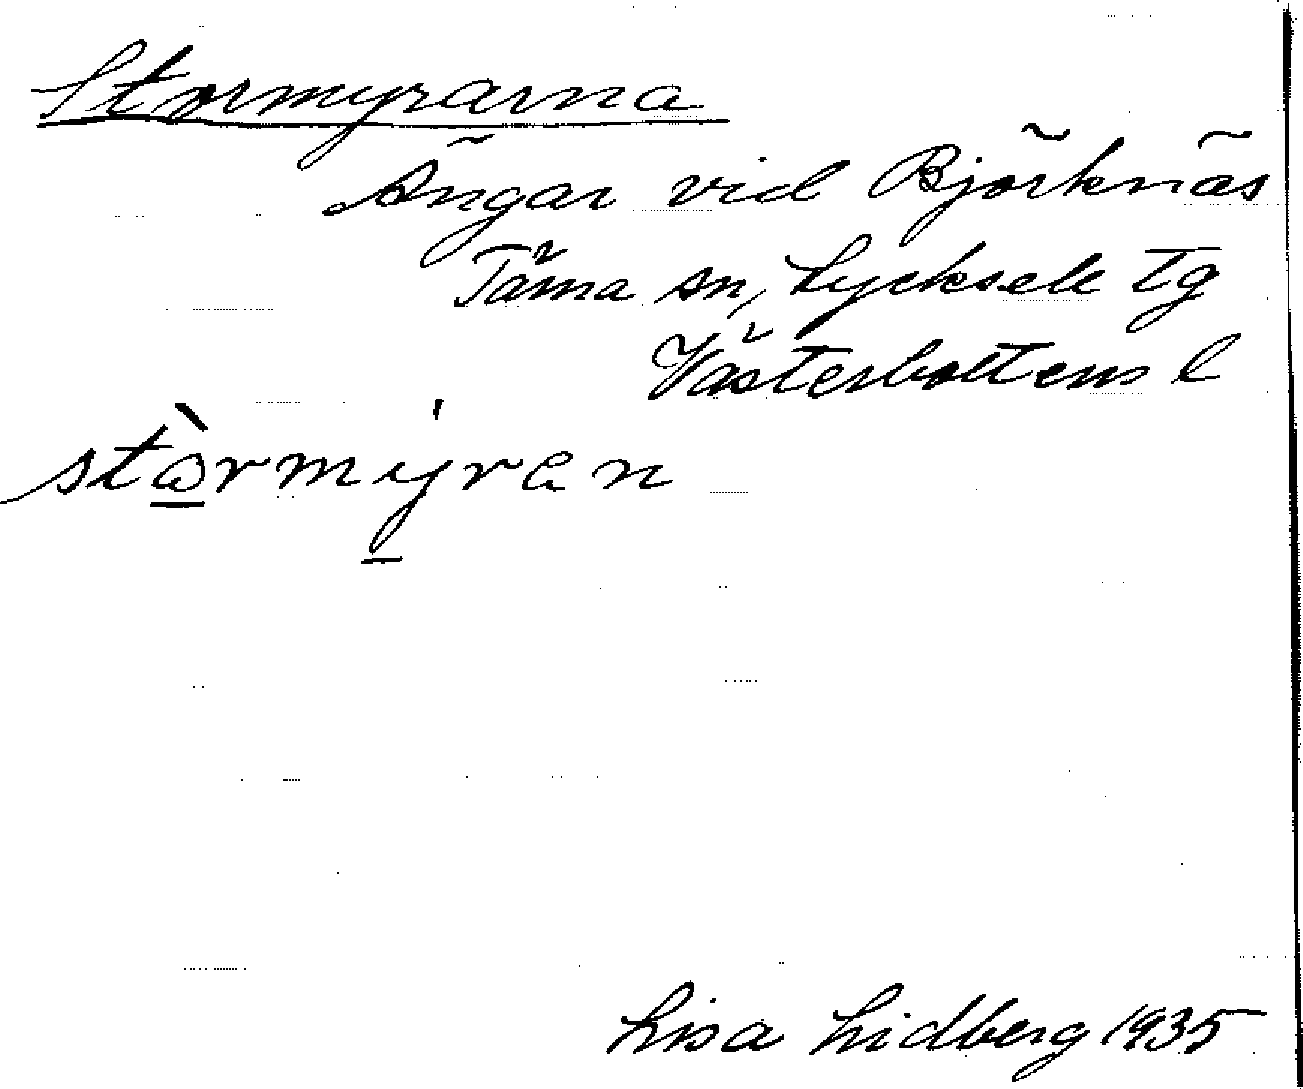 Stormyrarna
Ängar vid Björknäs
Tärna sn, Lycksele tg
Västerbottens l
stòrmýran
Lisa Lidberg 1935